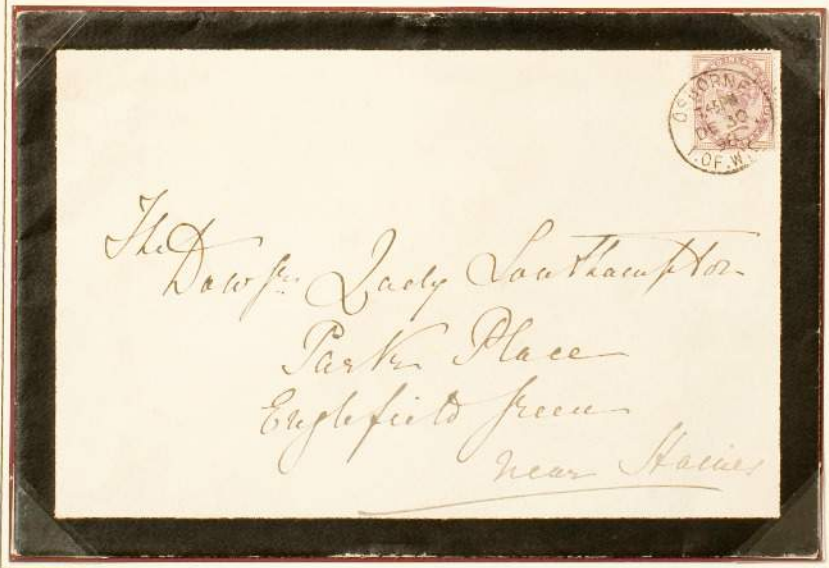 OSBORNE
45 PM
DE 30
I. OF. W.
The
Dowgr. Lady Southampton
Park Place
Englefield Green
near Staines